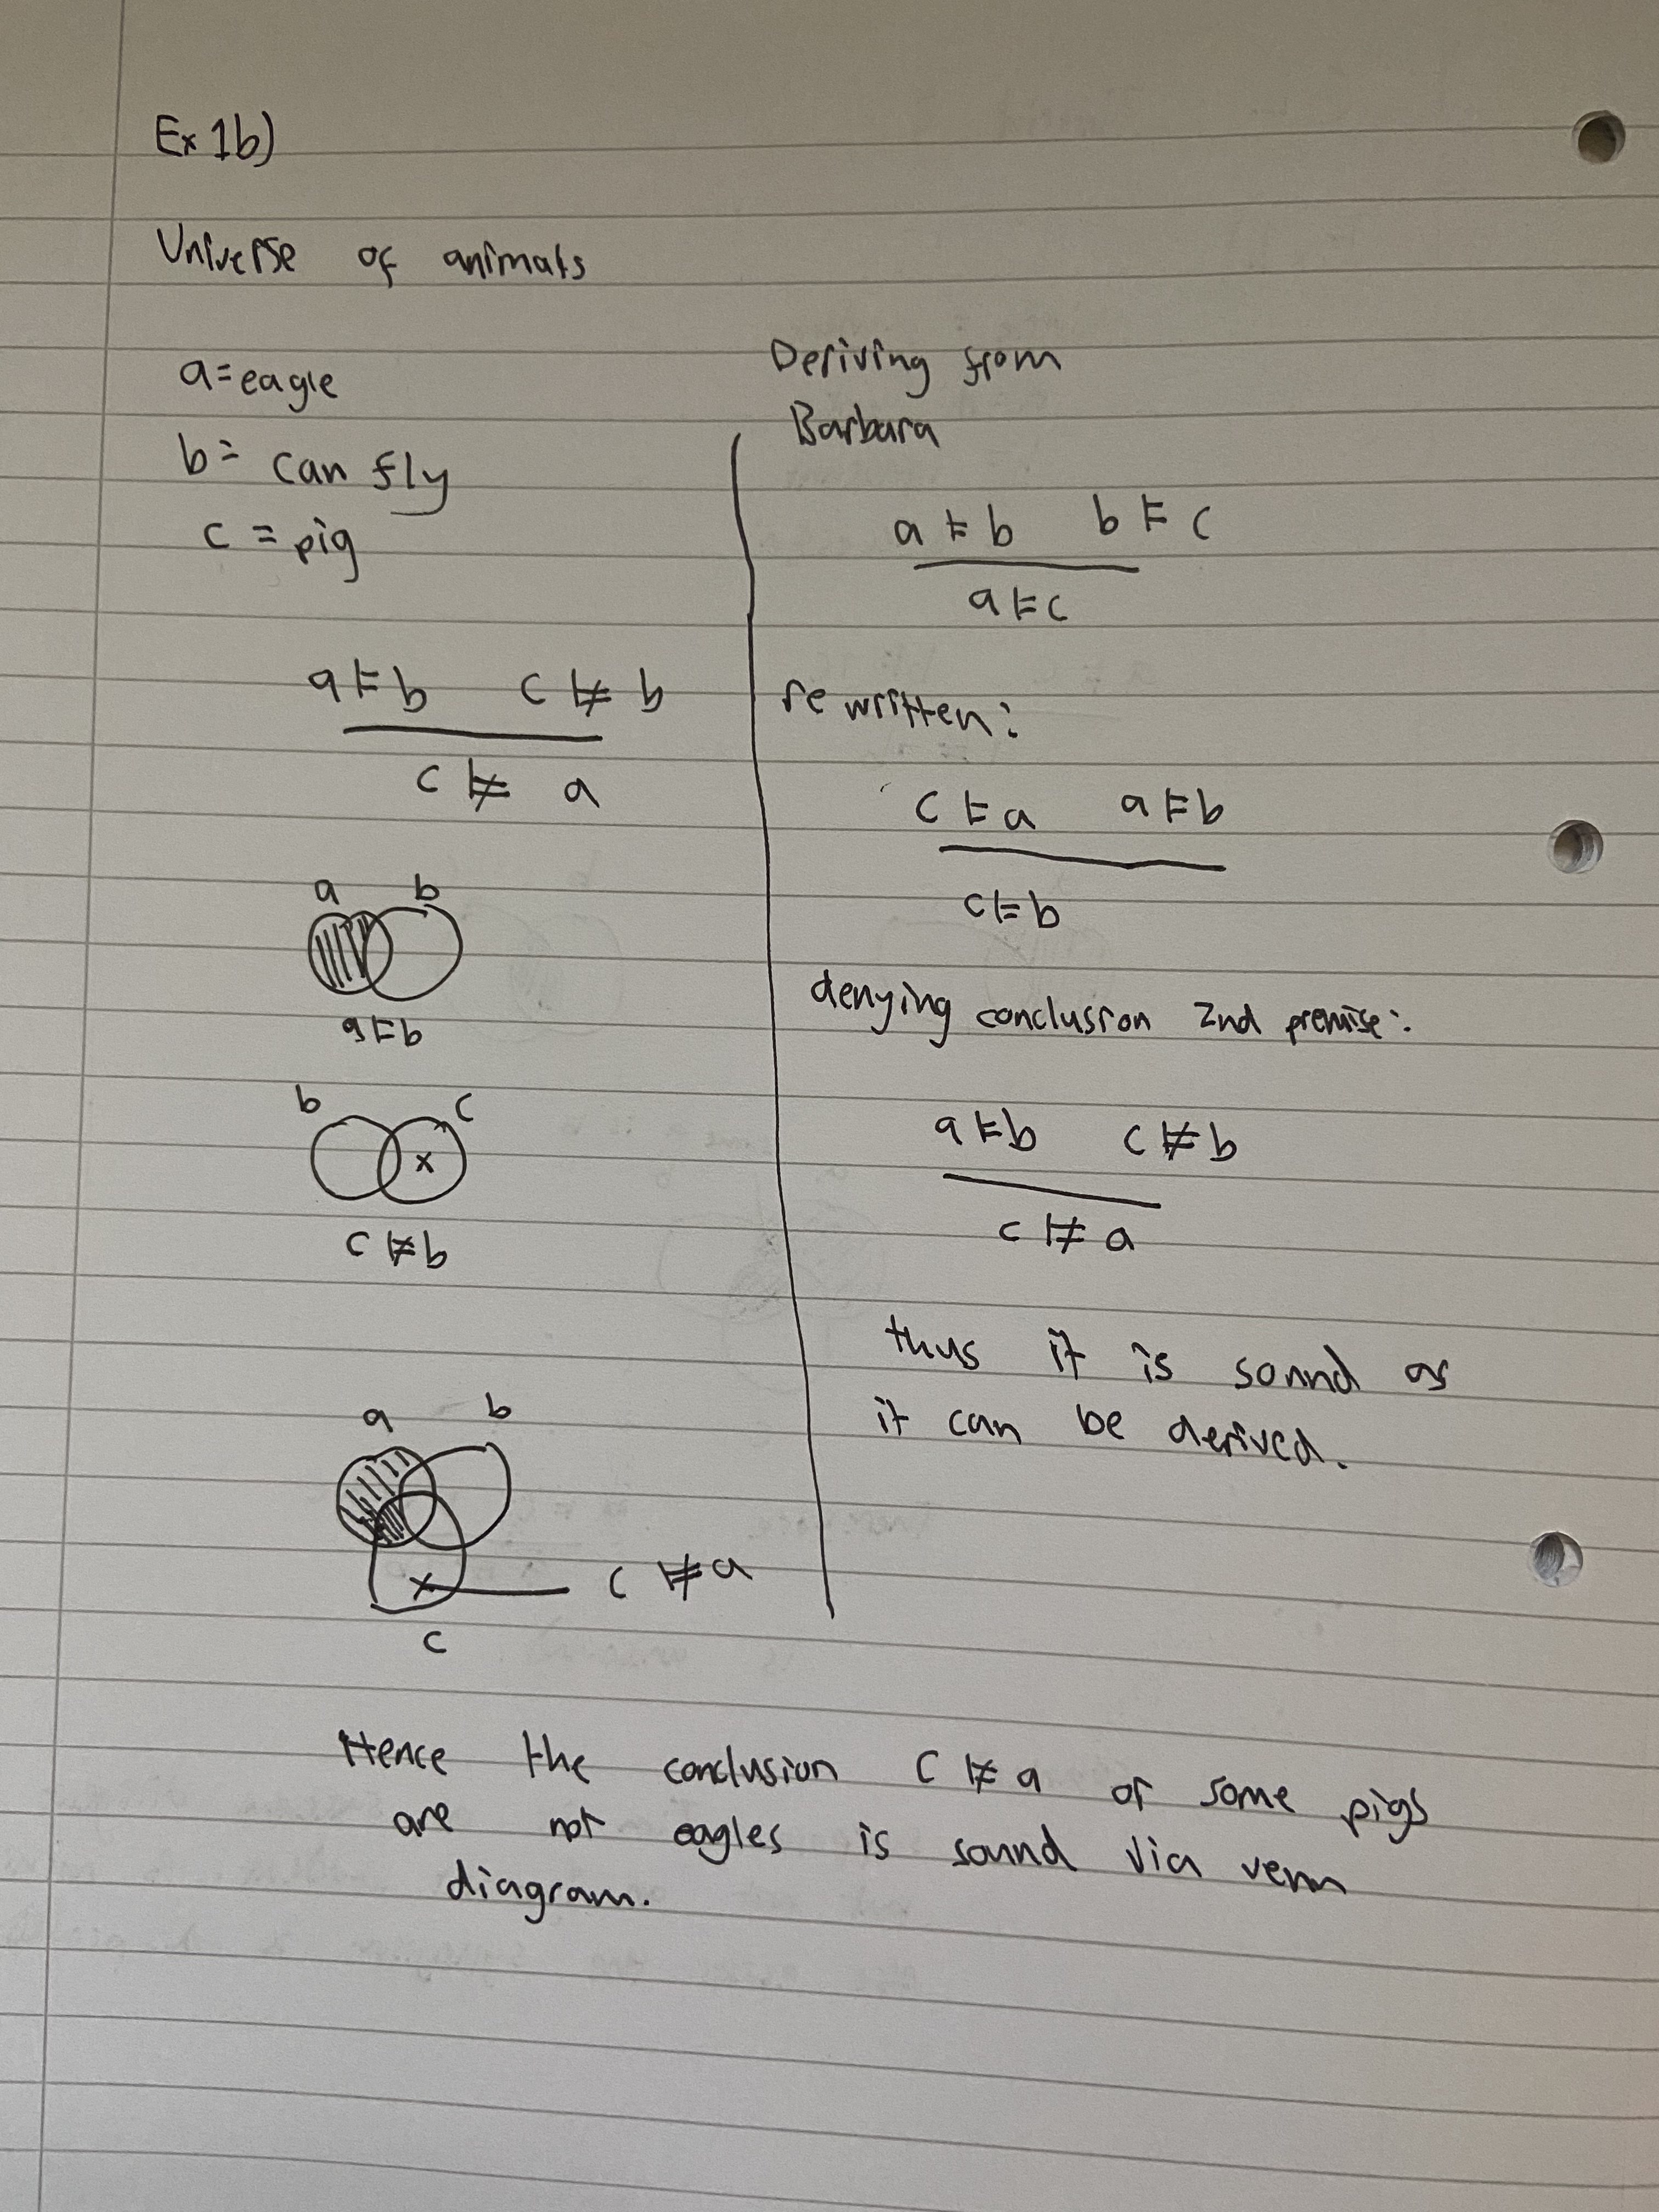 Ex 1b)
Universe of animals
a = eagle
b = can fly
c = pig
a ⊨ b   c ⊭ b
c ⊭ a
a   b
a ⊨ b
b   c
c ⊭ b
a   b
c ⊭ a
c
Deriving from
Barbara
a ⊨ b   b ⊨ c
a ⊨ c
rewritten:
c ⊨ a   a ⊨ b
c ⊨ b
denying conclusion 2nd premise:
a ⊨ b   c ⊭ b
c ⊭ a
thus it is sound as
it can be derived.
Hence the conclusion c ⊭ a or some pigs
are not eagles is sound via venn
diagram.